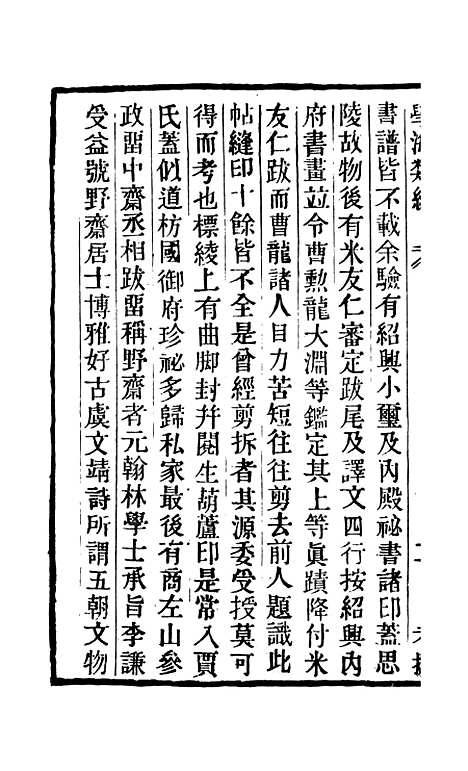 學海類編
書譜皆不載余驗有紹興小璽及內殿祕書諸印蓋思
陵故物後有米友仁審定跋尾及譯文四行按紹興內
府書畫並令曹勲龍大淵等鑑定其上等眞蹟降付米
友仁跋而曹龍諸人目力苦短往往剪去前人題識此
帖縫印十餘皆不全是曾經剪拆者其源委受授莫可
得而考也標綾上有曲脚封幷閱生葫蘆印是常入賈
氏蓋似道枋國御府珍祕多歸私家最後有商左山參
政畱中齋丞相跋畱稱野齋者元翰林學士承旨李謙
受益號野齋居士博雅好古虞文靖詩所謂五朝文物